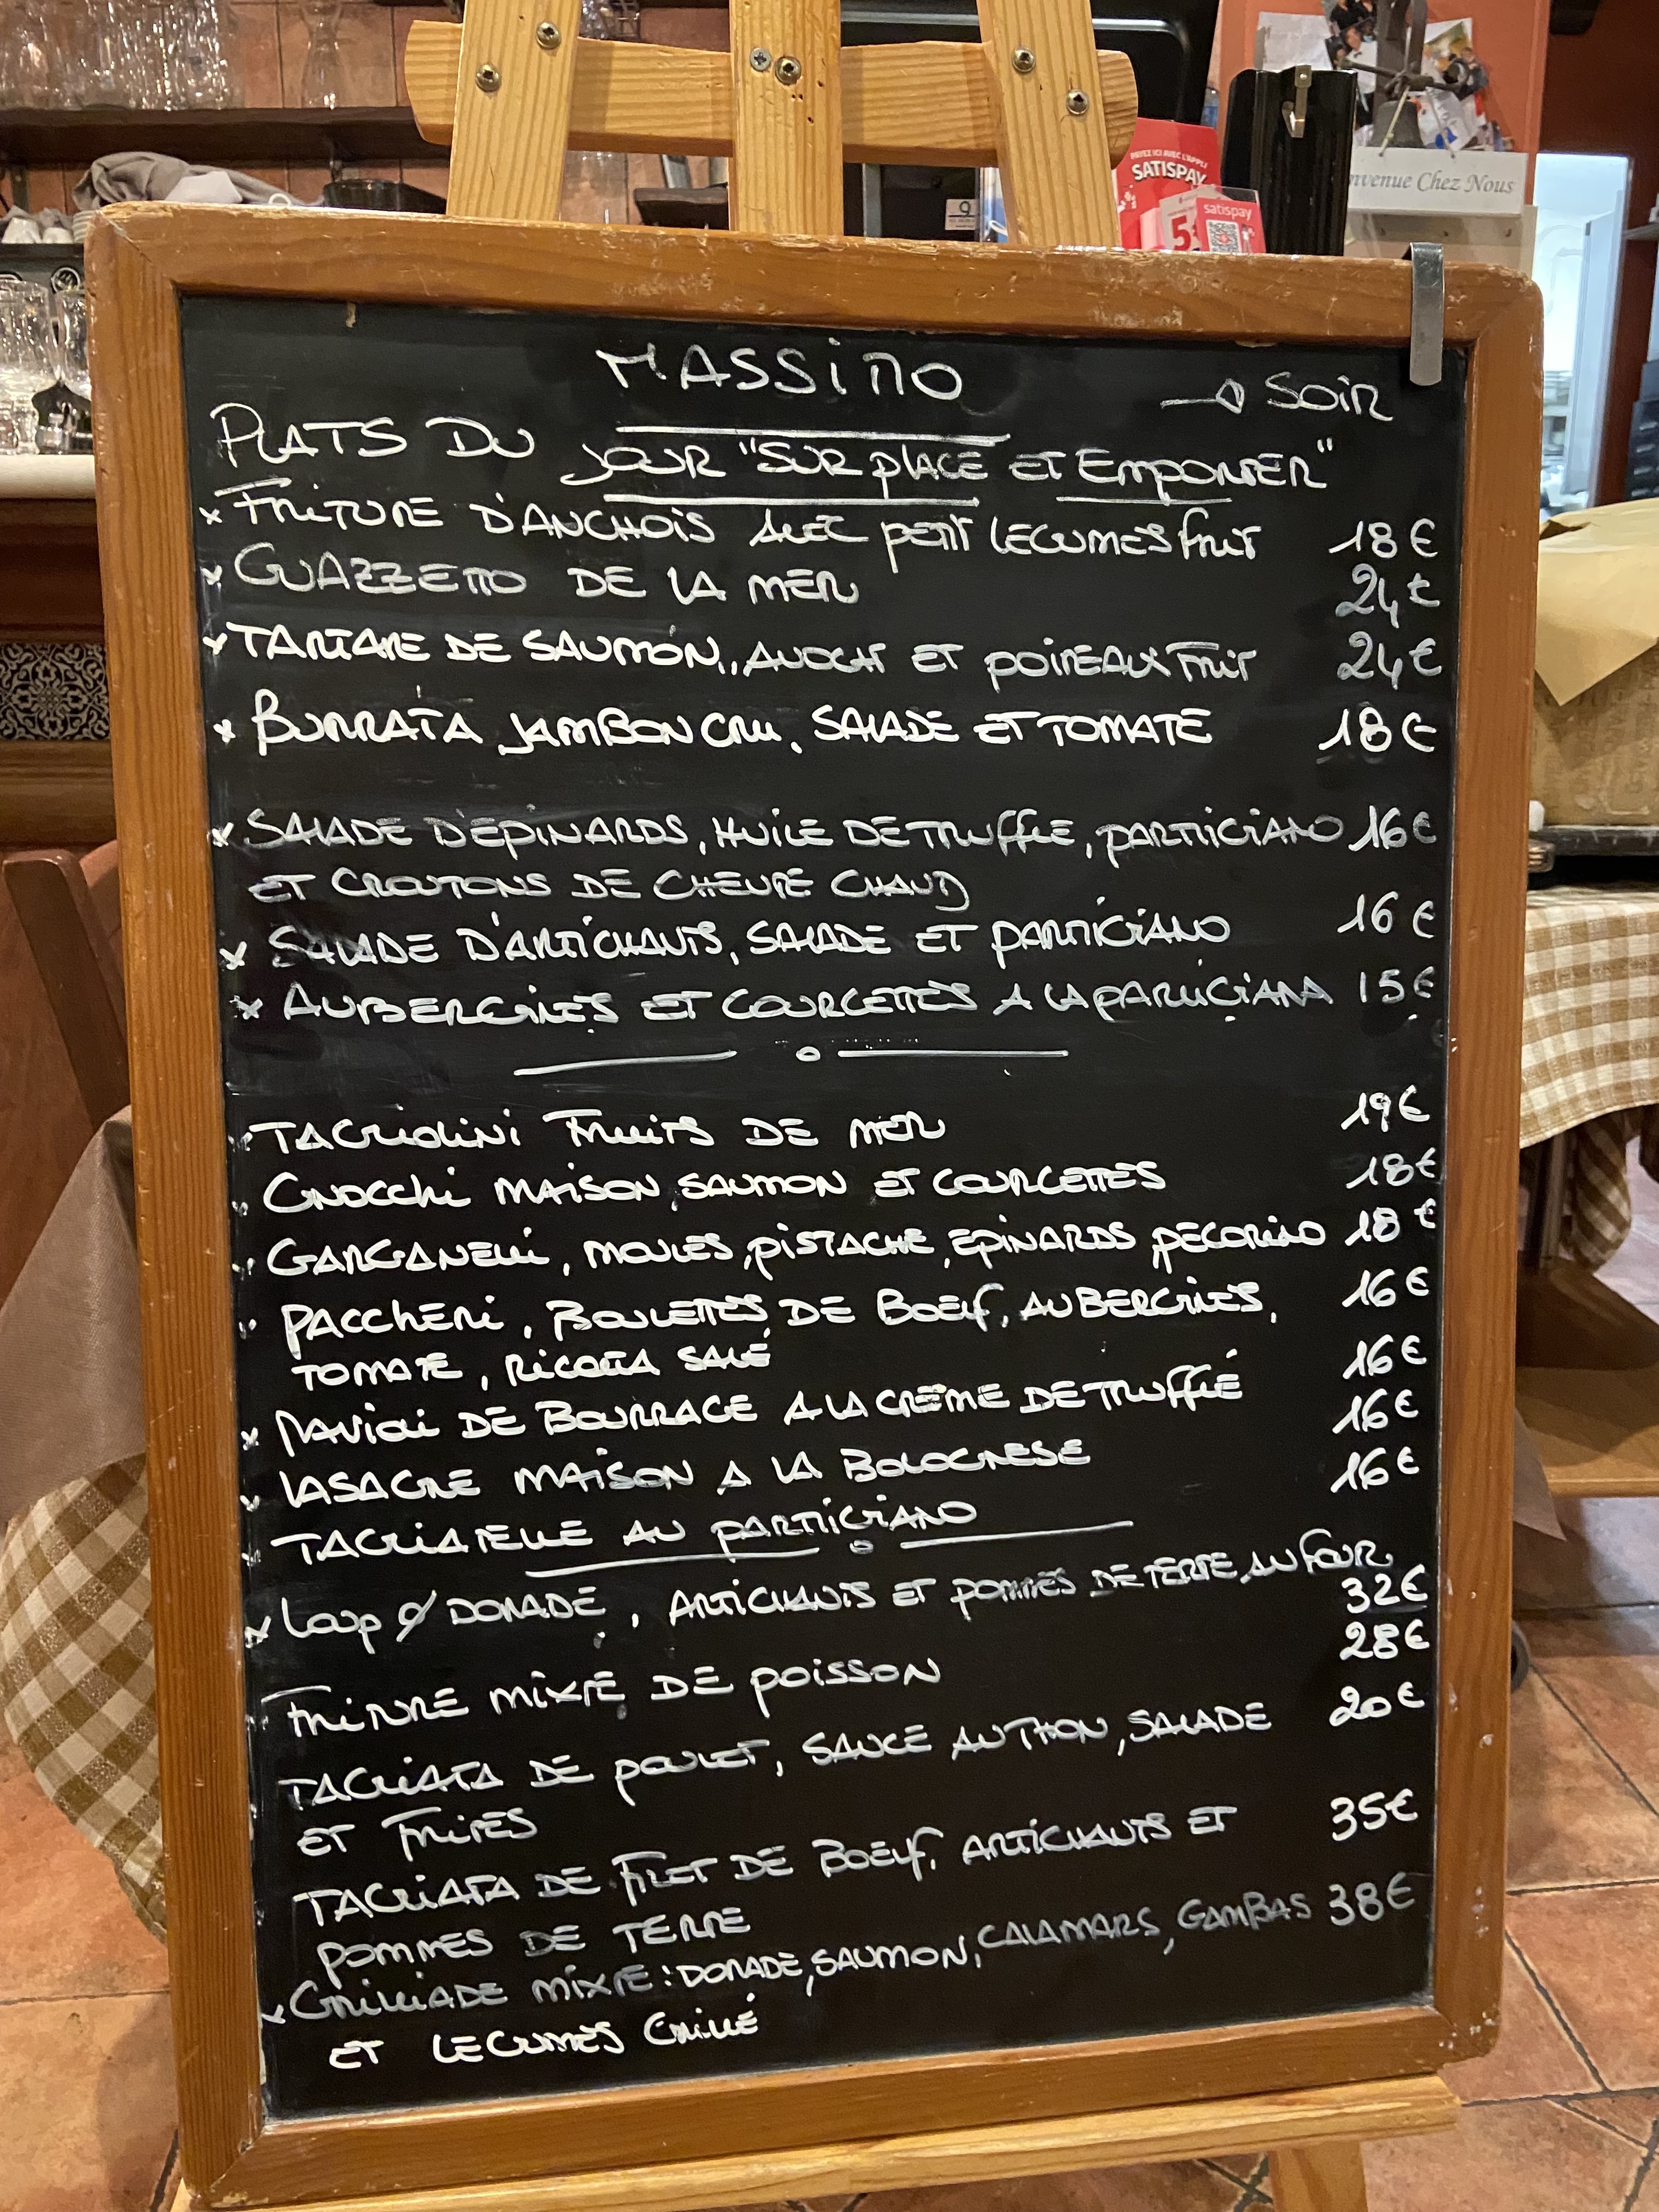 PAYEZ ICI AVEC L'APPLI
SATISPAY
satispay
5
9
nvenue Chez Nous
MASSIMO
→ SOIR
PLATS DU JOUR "SUR PLACE ET EMPORTER"
× FRITURE D'ANCHOIS AVEC PETIT LEGUMES FRIT 18€
× GUAZZETTO DE LA MER 24€
× TARTARE DE SAUMON, AVOCAT ET POIREAUX FRIT 24€
× BURRATA JAMBON CRU, SALADE ET TOMATE 18€
× SALADE D'EPINARDS, HUILE DE TRUFFLE, PARMIGIANO 16€
ET CROUTONS DE CHEVRE CHAUD
× SALADE D'ARTICHAUTS, SALADE ET PARMIGIANO 16€
× AUBERGINES ET COURGETTES A LA PARMIGIANA 15€
TAGLIOLINI FRUITS DE MER 19€
GNOCCHI MAISON, SAUMON ET COURGETTES 18€
GARGANELLI, MOULES, PISTACHE, EPINARDS PECORINO 18€
PACCHERI, BOULETTES DE BOEUF, AUBERGINES, 16€
TOMATE, RICOTTA SALÉ
× RAVIOLI DE BOURRAGE A LA CRÈME DE TRUFFLE 16€
× LASAGNE MAISON A LA BOLOGNESE 16€
× TAGLIATELLE AU PARMIGIANO 16€
× LOUP Ø DORADE, ARTICHAUTS ET POMMES DE TERRE AU FOUR
32€
FRITURE MIXTE DE POISSON 28€
TAGLIATA DE POULET, SAUCE AU THON, SALADE 20€
ET FRITES
TAGLIATA DE FILET DE BOEUF, ARTICHAUTS ET 35€
POMMES DE TERRE
× GRILLIADE MIXTE: DORADE, SAUMON, CALAMARS, GAMBAS 38€
ET LEGUMES GRILLÉ